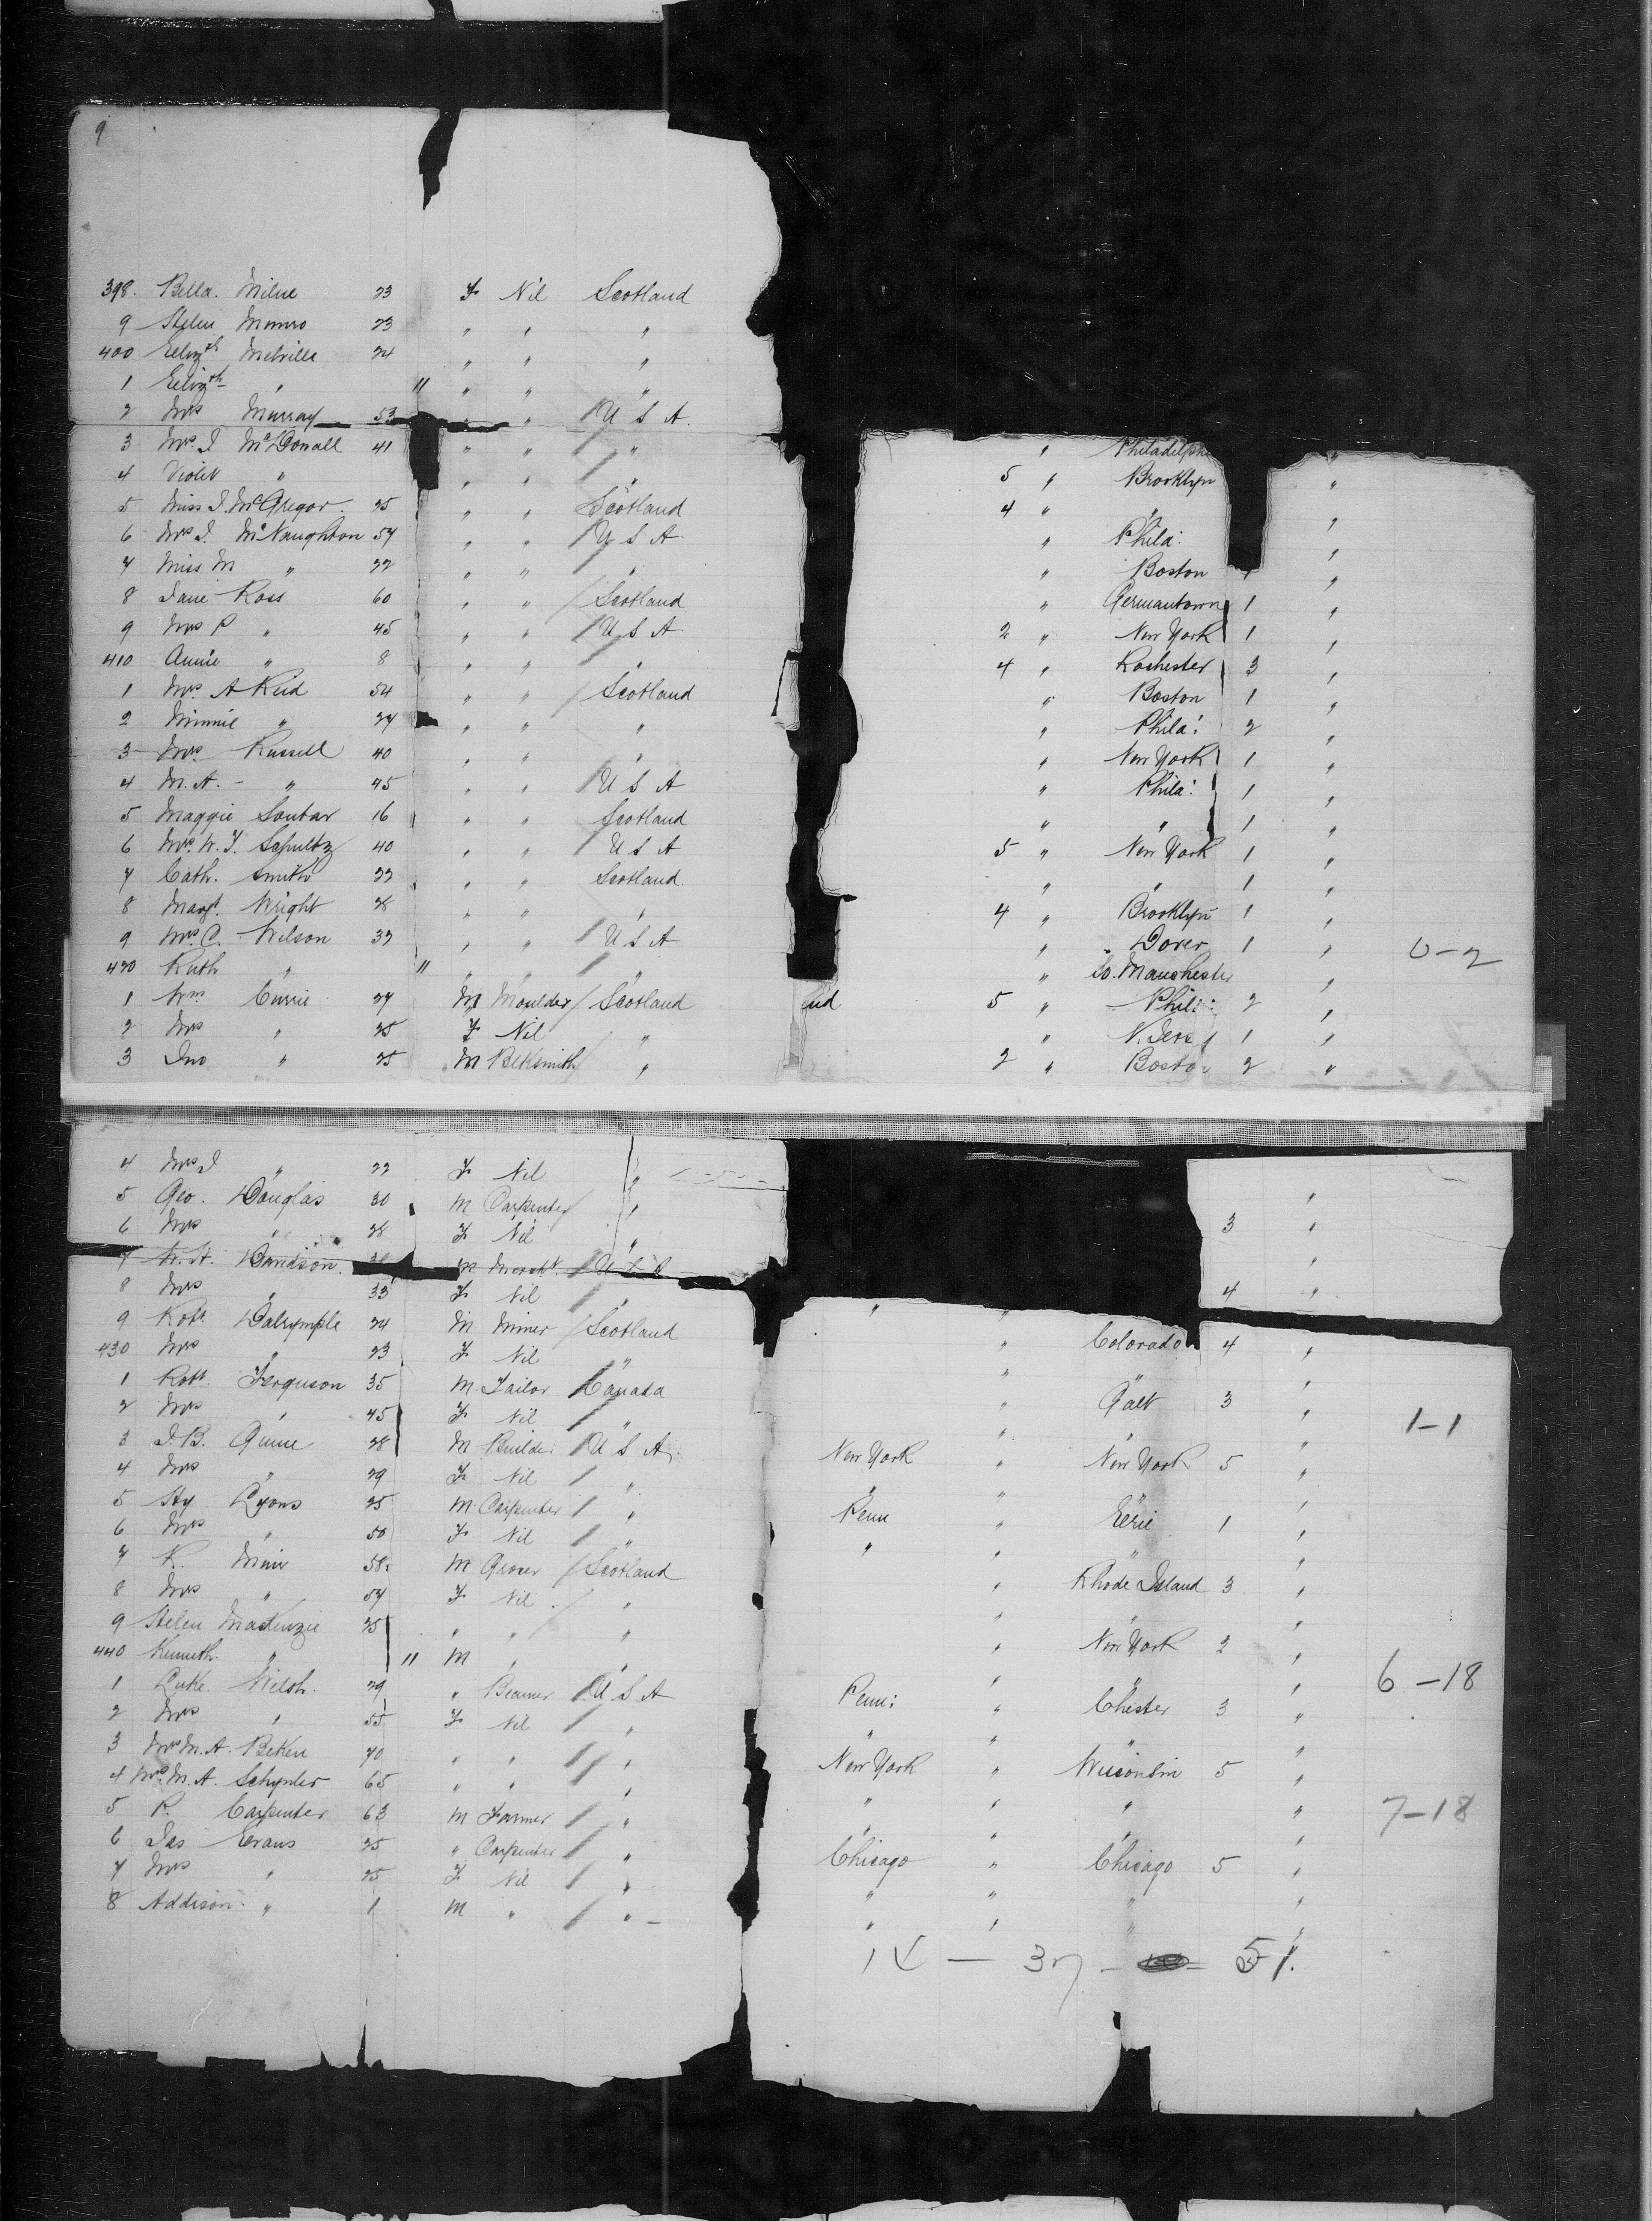 9
398. Bella. Milne 23 F Nil Scotland
9 Helen Munro 23 " " "
400 Elizth Melville 24 " " "
1 Elizth " 11 " " "
2 Mrs Murray 53 " " U S A.
3 Mrs J McDonall 41 " " " " Philadelph "
4 Violet " " " " 5 " Brooklyn "
5 Miss J. McGregor. 25 " " Scotland 4 " " "
6 Mrs J McNaughton 57 " " U S A " Phila: "
7 Miss M " 22 " " " " Boston 1 "
8 Jane Ross 60 " " Scotland " Germantown 1 "
9 Mrs P " 45 " " U S A 2 " New York 1 "
410 Annie " 8 " " " 4 " Rochester 3 "
1 Mrs. A Reid 54 " " Scotland " Boston 1 "
2 Minnie " 27 " " " " Phila: 2 "
3 Mrs. Russell 40 " " " " New York 1 "
4 M. A. - " 45 " " U S A " Phila: 1 "
5 Maggie Soutar 16 " " Scotland " " 1 "
6 Mrs. W. F. Schultz 40 " " U S A 5 " New York 1 "
7 Cath. Smith 22 " " Scotland. " " 1 "
8 Margt. Wright 28 " " " 4 " Brooklyn 1 "
9 Mrs. C. Wilson 32 " " U S A " Dover 1 " 0-2
420 Ruth " 11 " " " " So. Manchester "
1 Wm Currie 27 M Moulder Scotland nd 5 " Phil: 2 "
2 Mrs " 25 F Nil " " N. Jers 1 "
3 Jno " 25 M Blksmith " 2 " Boston 2 "
4 Mrs J " 22 F Nil " "
5 Geo. Douglas 30 M Carpenter " 3 "
6 Mrs " 28 F Nil " "
7 W. H. Davidson. M Mercht. U S A 4 "
8 Mrs " 33 F Nil " " "
9 Robt. Dalrymple 24 M Miner Scotland " Colorado 4 "
430 Mrs " 23 F Nil " " " "
1 Robt. Ferguson 35 M Tailor Canada " Galt 3 " 1-1
2 Mrs " 45 F Nil " " " "
3 J. B. Gunn 28 M Builder U S A. New York " New York 5 "
4 Mrs " 29 F Nil " " " " "
5 Hy Lyons 25 M Carpenter " Penn " Erie 1 "
6 Mrs " 50 F Nil " " " " "
7 R. Muir 58 M Grocer Scotland " Rhode Island 3 "
8 Mrs " 57 F Nil. " " " "
9 Helen MacKenzie 25 " " " " New York 2 "
440 Kenneth. " 11 M " " " " " 6-18
1 Luke. Welsh. 29 " Beamer U S A Penn: " Chester 3 "
2 Mrs " 55 F Nil " " " " "
3 Mrs M. A. Beken 70 " " " New York " Wisconsin 5 "
4 Mrs M. A. Schynler 65 " " " " " " " 7-18
5 R. Carpenter 63 M Farmer " " " " "
6 Jas Evans 25 " Carpenter " Chicago " Chicago 5 "
7 Mrs " 25 F Nil " " " " "
8 Addison. " 1 M " " - " " " "
14 — 37 - - 51.